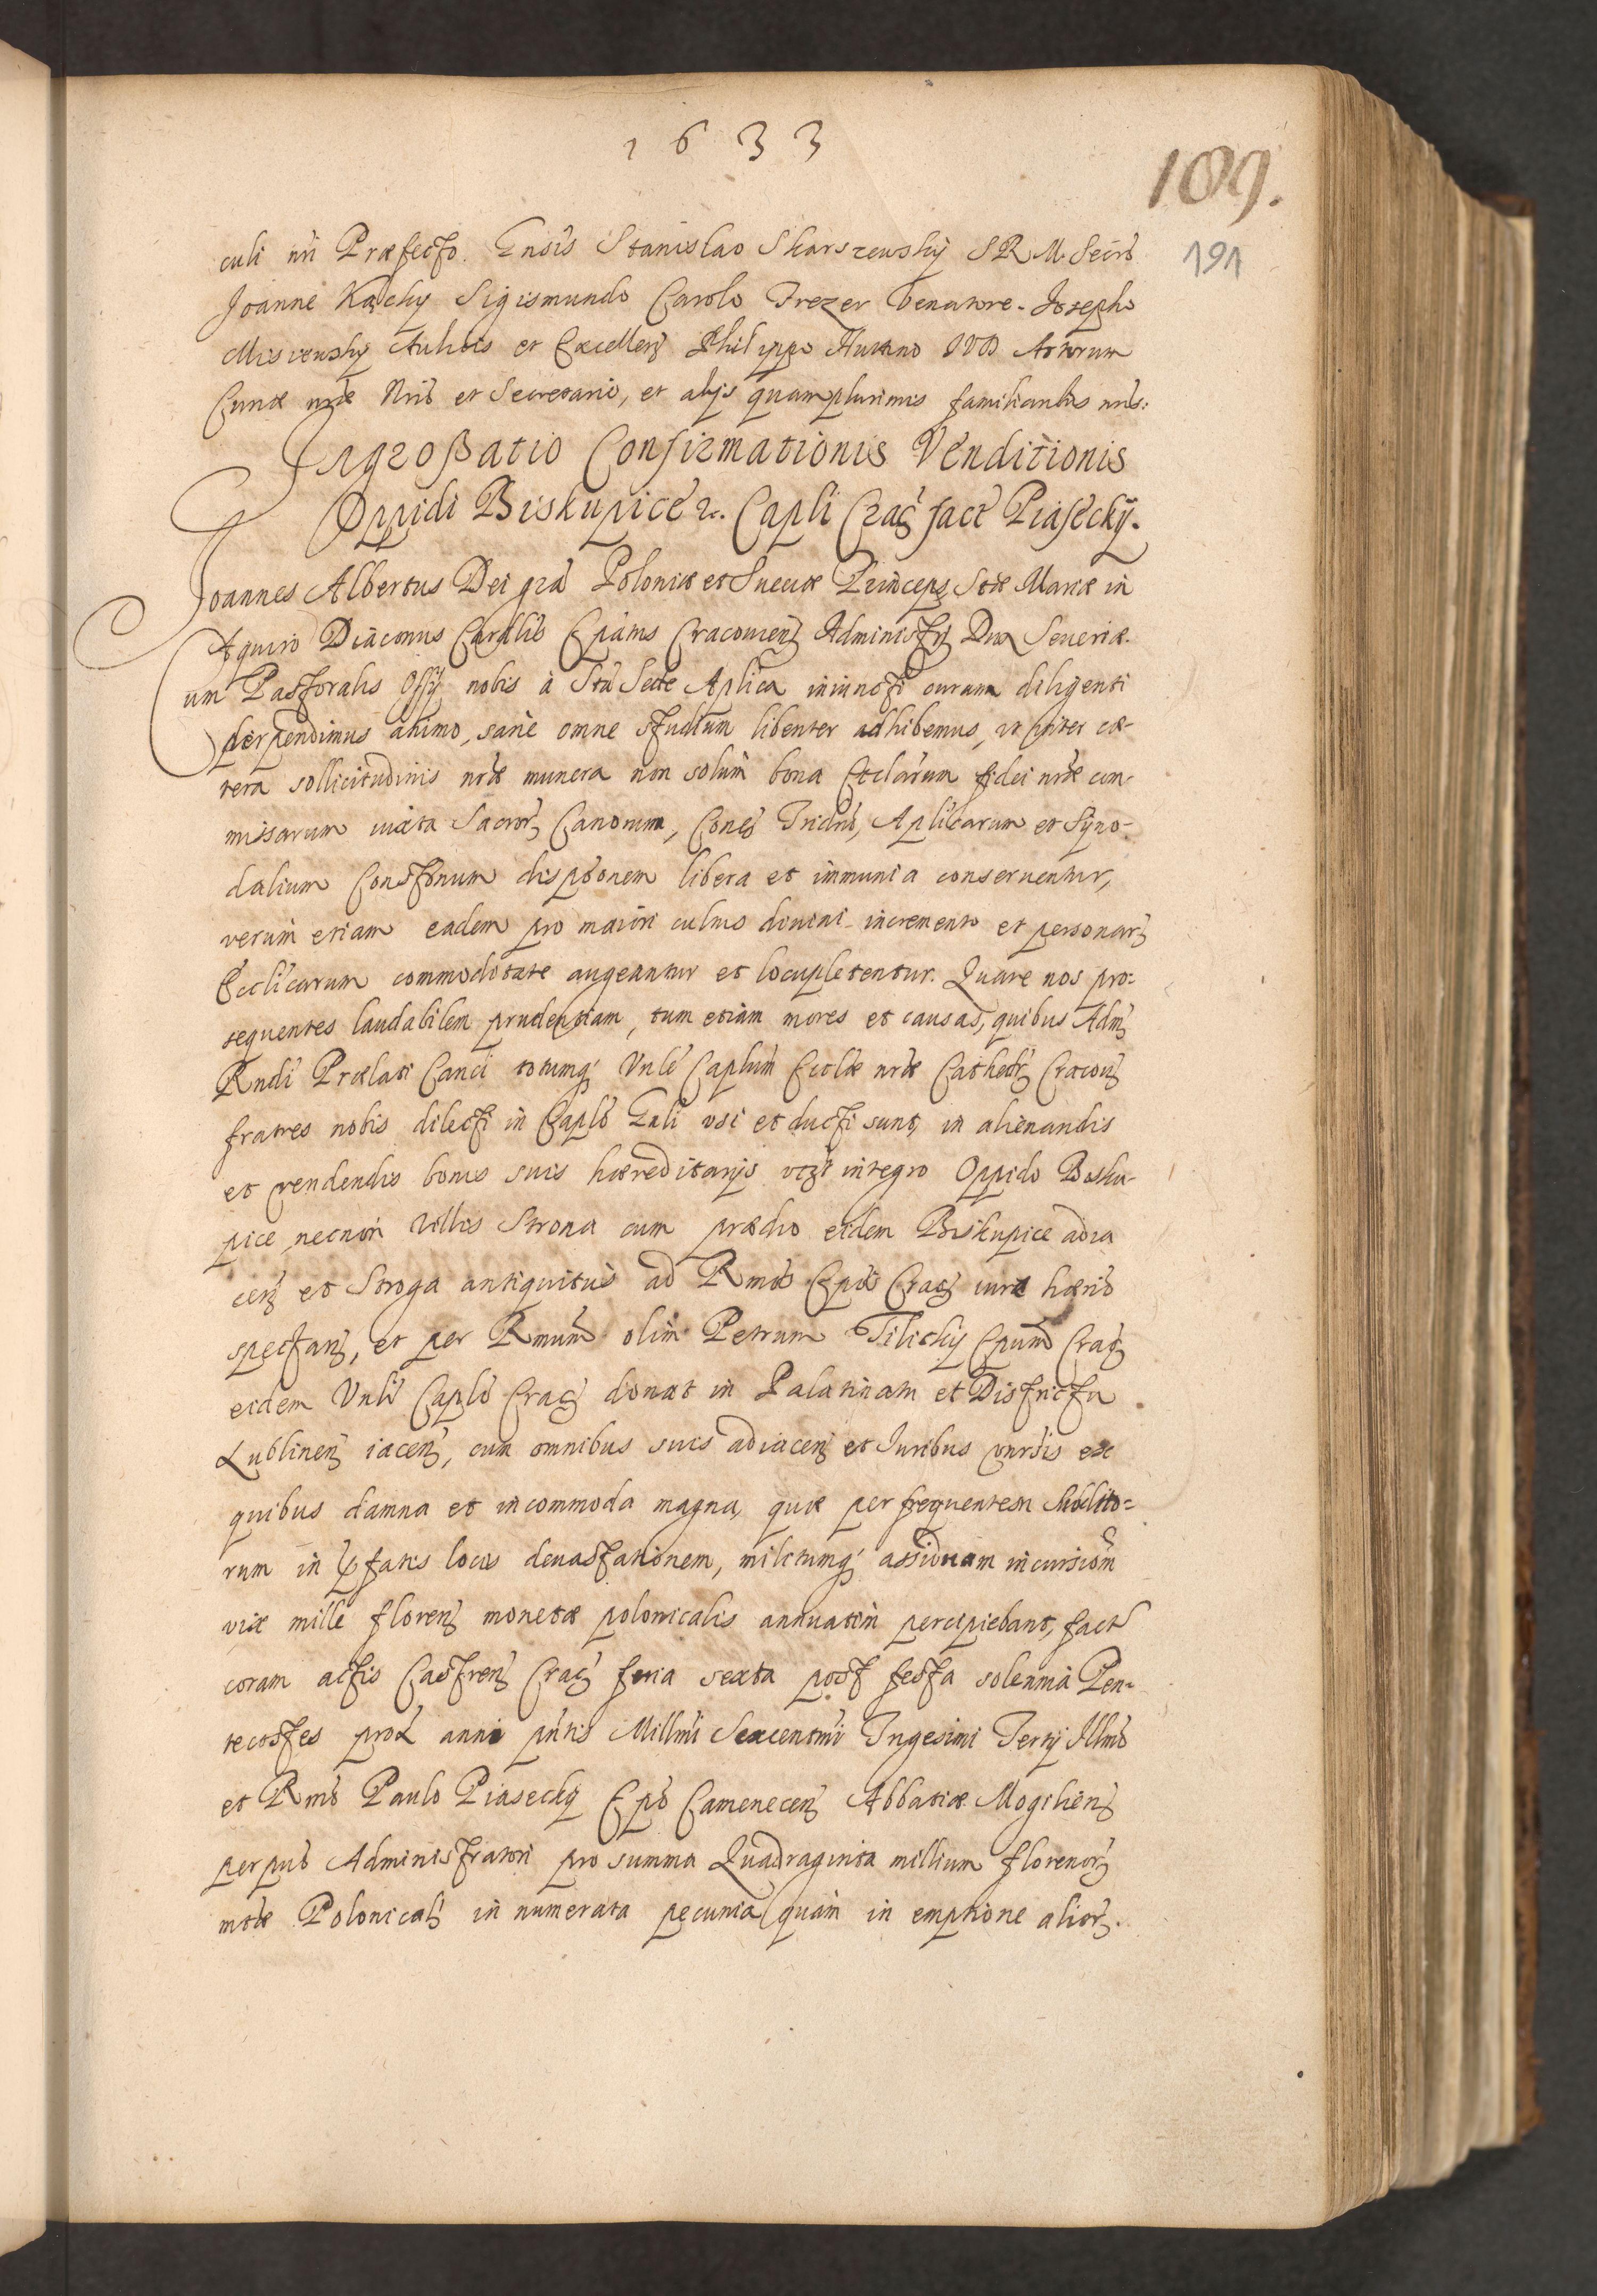 1633
109.
191
culi nri Præfecto. Gnsis Stanislao Skarszewsky S R M. Secrio
Joanne Kącky Sigismundo Carolo Frezer Venatore. Josepho
Aulicis et Excellen Philippo IVD Actorum
Curiæ nræ Nrio et Secretario, et alijs quamplurimis familiaribus nris.
Ingroßatio Confirmationis Venditionis
Oppidi Biskupice &c. Capli Crac̃ factæ Piasecky.
Joannes Albertus Dei gr̃a Poloniæ et Sueciæ Princeps Stæ Mariæ in
Aquiro Diaconus Cardlis Epatus Cracovien Administr Dux Seueriæ.
Cum Pastoralis Offij nobis à Sta Sede Aplica iniuncti curam diligenti
perpendimus animo, sane omne studium libenter adhibemus, vt inter cæ-
tera sollicitudinis nræ munera non solum bona Ecclarum fidei nræ com-
missarum iuxta Sacror Canonum, Conc Trident, Aplicarum et Syno-
dalium Consttnum disptionem libera et immunia conseruentur,
verum etiam eadem pro maiori cultus diuini incremento et personar
Ecclicarum commoditate augeantur et locupletentur. Quare nos pro-
sequentes laudabilem prudentiam, tum etiam mores et causas, quibus Adm
Rndi Prælati Canci totumq Vnle Caplum Eccliæ nræ Cathedr Cracou
fratres nobis dilecti in Caplo Gnli vsi et ducti sunt, in alienandis
et vendendis bonis suis hæreditarijs vizt integro Oppido Bisku-
pice necnon Villis Strona cum prædio eidem Biskupice adia
cen et Stroga antiquitus ad Rmos Epos Crac iure hærio
spectan, et per Rmum olim Petrum Tilicky Epum Crac
eidem Vnli Caplo Crac donat in Palatinatu et Districtu
Lublinen iacen, cum omnibus suis adiacen et Iuribus vnrsis ex
quibus damna et incommoda magna, quæ per frequentem Subdito-
rum in pfatis locis deuastationem, militumq assiduam incursiom
vix mille floren monetæ polonicalis annuatim percipiebant, fact
coram actis Castren Crac feria sexta post festa solennia Pen-
tecostes prox anni pntis Millmi Sexcentmi Trigesimi Tertij Illmo
et Rmo Paulo Piasecky Epo Camenecen Abbatiæ Mogilien
perpuo Administratori pro summa Quadraginta millium florenor
mtæ Polonicals in numerata pecunia quam in emptione alior.